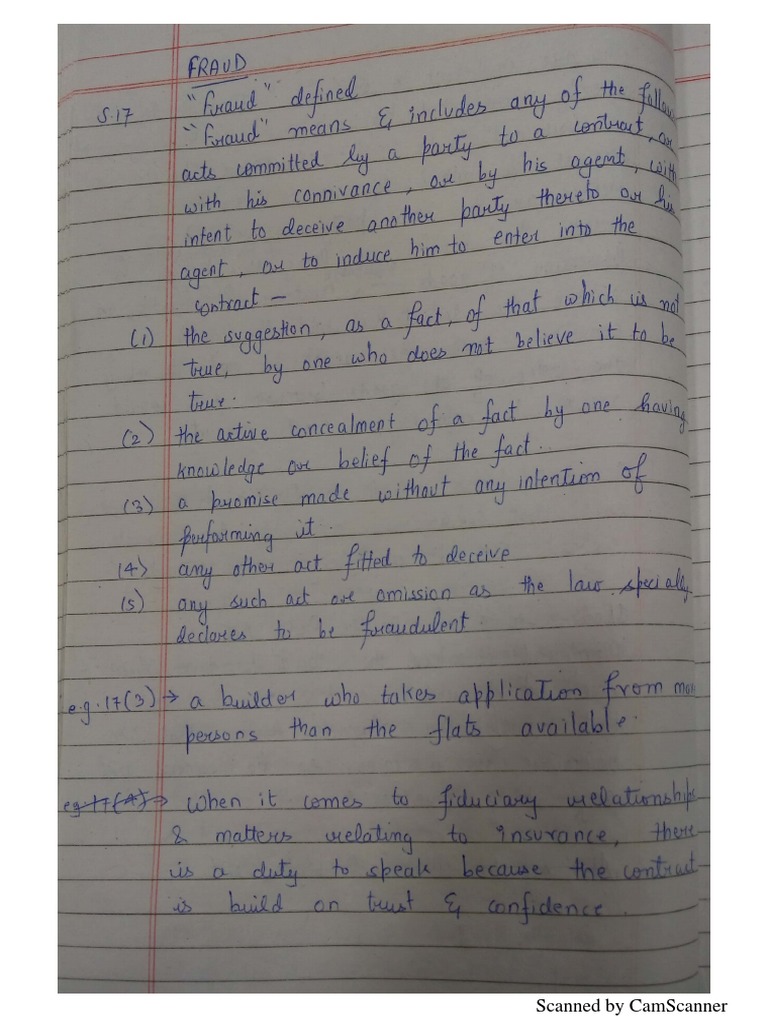 FRAUD
S.17 "Fraud" defined
"Fraud" means & includes any of the follow
acts committed by a party to a contract, or
with his connivance, or by his agent, with
intent to deceive another party thereto or his
agent, or to induce him to enter into the
contract —
(1) the suggestion, as a fact, of that which is not
true, by one who does not believe it to be
true.
(2) the active concealment of a fact by one having
knowledge or belief of the fact.
(3) a promise made without any intention of
performing it.
(4) any other act fitted to deceive
(5) any such act or omission as the law specially
declares to be fraudulent.
e.g. 17(3) → a builder who takes application from more
persons than the flats available.
eg 17(4) → When it comes to fiduciary relationships
& matters relating to insurance, there
is a duty to speak because the contract
is build on trust & confidence.
Scanned by CamScanner